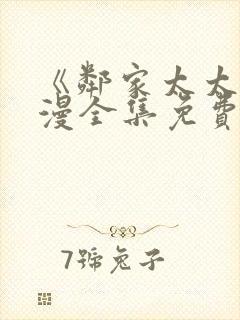 《鄰家太太
漫全集免費
7號兔子